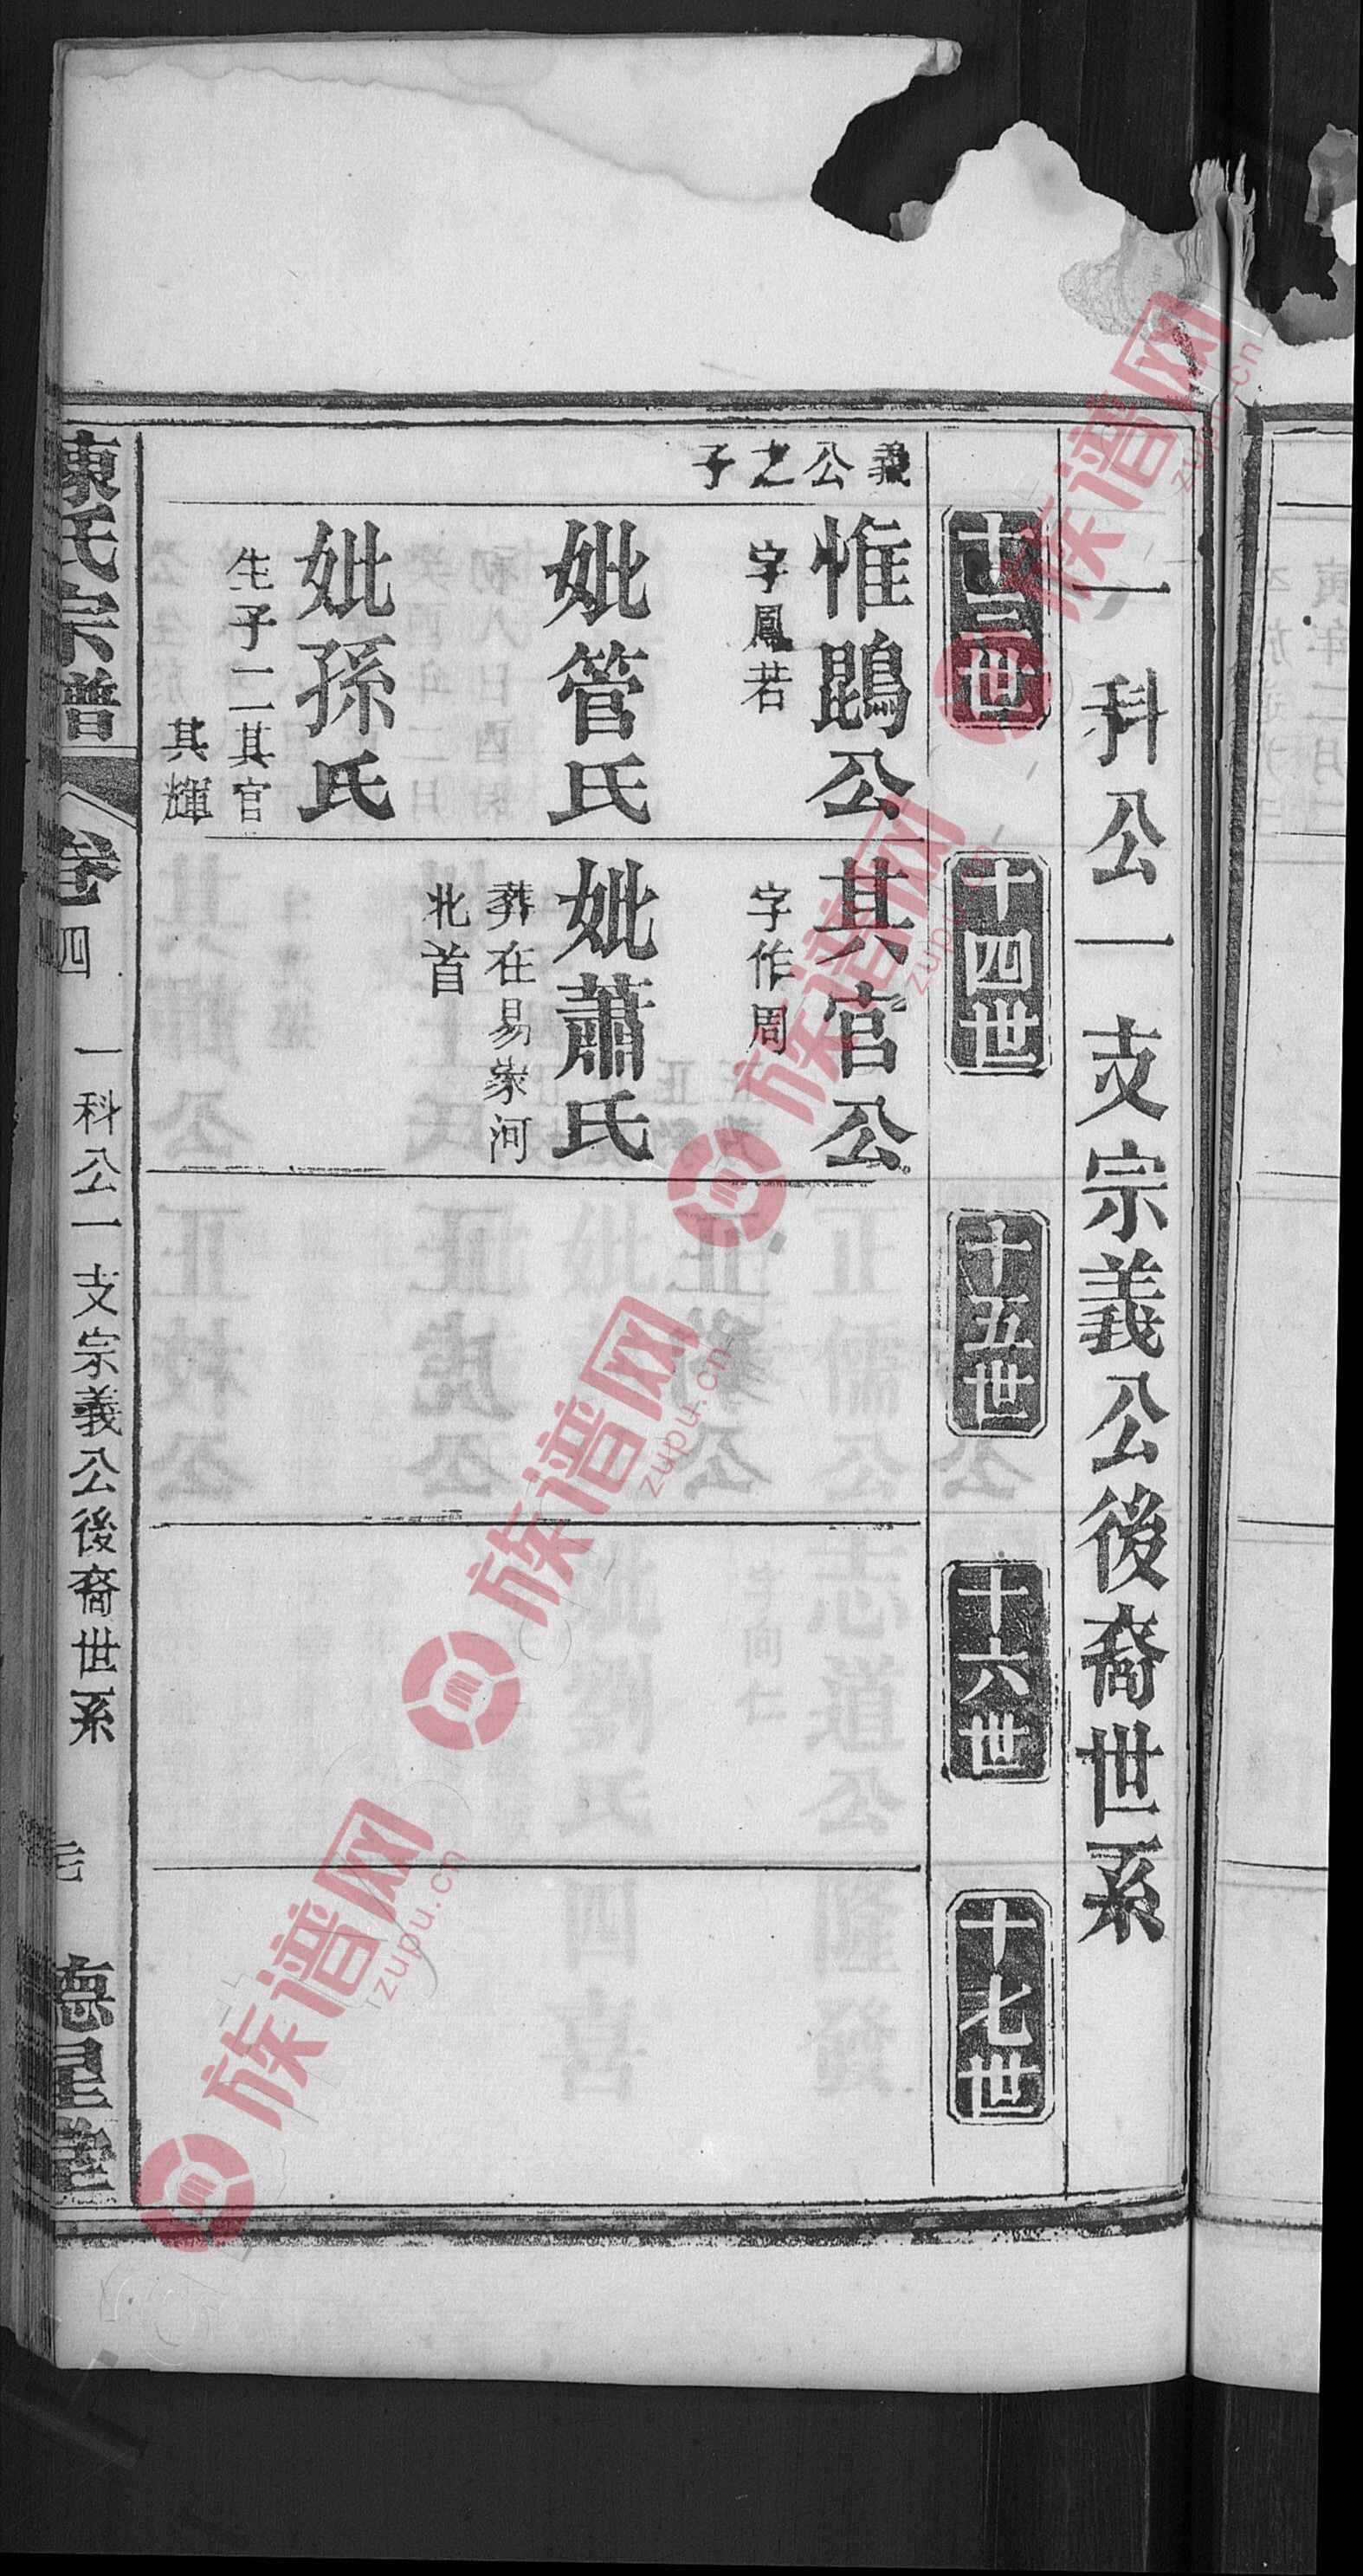 一科公一支宗義公後裔世系
十三世
十四世
十五世
十六世
十七世
義公之子
惟鵾公
字鳳若
妣管氏
妣孫氏
生子二其官
其輝
其官公
字作周
妣蕭氏
葬在易家河
北首
陳氏宗譜
卷四
一科公一支宗義公後裔世系
德星堂
族谱网
zupu.cn
族谱网
zupu.cn
族谱网
zupu.cn
族谱网
zupu.cn